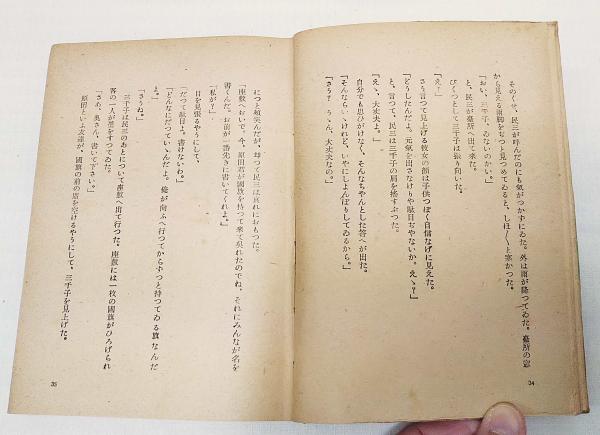 そのくせ、民三が呼んだのにも氣がつかずにゐた。外は雨が降つてゐた。臺所の窓
から見える雨脚をぢつと見つめてゐると、しほ〴〵と寒かつた。
「おい、三千子、ゐないのかい。」
と、民三が臺所へ出て來た。
びくつとして三千子は振り向いた。
「え？」
さう言つて見上げる彼女の顏は子供つぽく自信なげに見えた。
「どうしたんだよ。元氣を出さなけりや駄目ぢやないか。えゝ？」
と、言つて、民三は三千子の肩を搖すぶつた。
「えゝ、大丈夫よ。」
自分でも思ひがけなく、そんなちやんとした答へが出た。
「そんならいゝけれど、いやにしよんぼりしてゐるから。」
「さう？ うゝん、大丈夫なの。」
34
につと頰笑んだが、却つて民三は哀れにおもつた。
「座敷へおいで。今、原田君が國旗を持つて來て吳れたのでね、それにみんなが名を
書くんだ。お前が一番先きに書いてくれよ。」
「私が？」
目を見張るやうにして、
「だつて駄目よ。書けないわ。」
「どんなにだつていゝんだよ。俺が向ふへ行つてからずつと持つてゐる旗なんだ
よ。」
「さうね。」
三千子は民三のあとについて座敷へ出て行つた。座敷には一枚の國旗がひろげられ
客の一人が墨をすつてゐた。
「さあ、奥さん、書いて下さい。」
原田といふ友達が、國旗の前の席を空けるやうにして、三千子を見上げた。
35